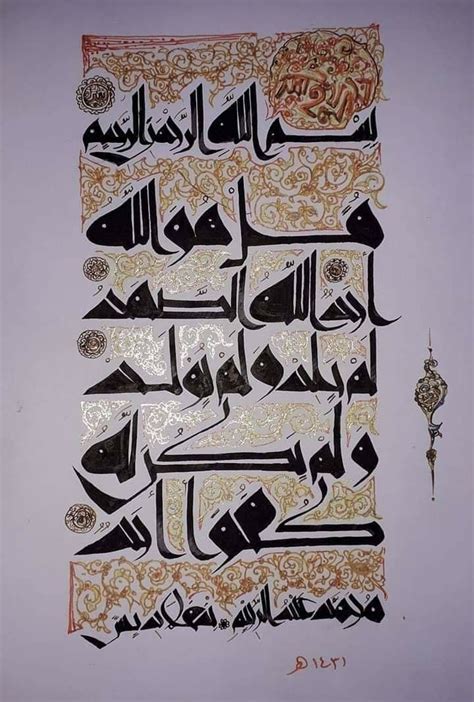 بِسْمِ اللَّهِ الرَّحْمَنِ الرَّحِيمِ
قُلْ هُوَ اللَّهُ
أَحَدٌ اللَّهُ الصَّمَدُ
لَمْ يَلِدْ وَلَمْ يُولَدْ
وَلَمْ يَكُن لَّهُ
كُفُوًا أَحَدٌ
١٤٣١هـ